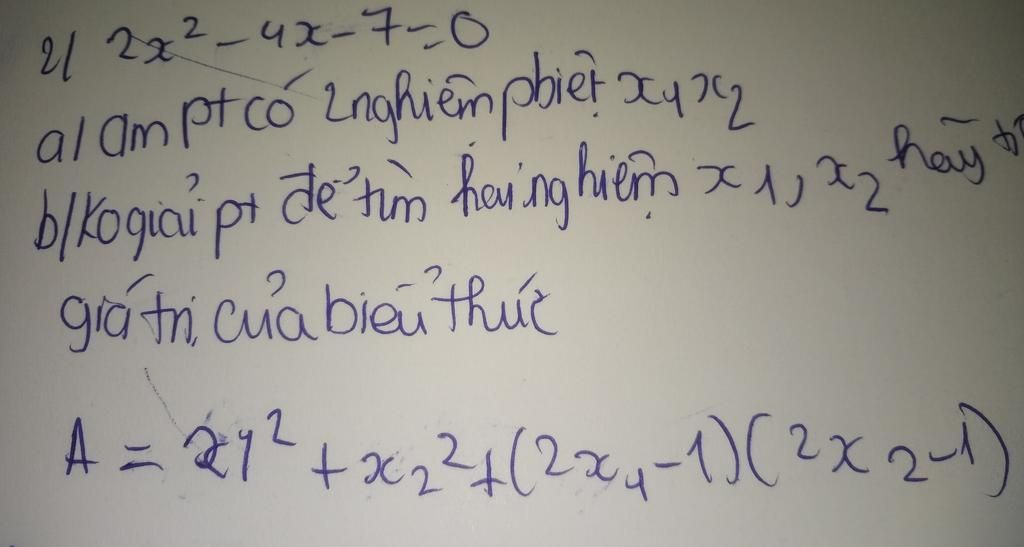 2/ 2x² - 4x - 7 = 0
a/ Cm pt có 2 nghiệm pbiệt x₁ x₂
b/ Ko giải pt để tìm hai nghiệm x₁, x₂ hãy
giá trị của biểu thức
A = x₁² + x₂² + (2x₁ - 1)(2x₂ - 1)